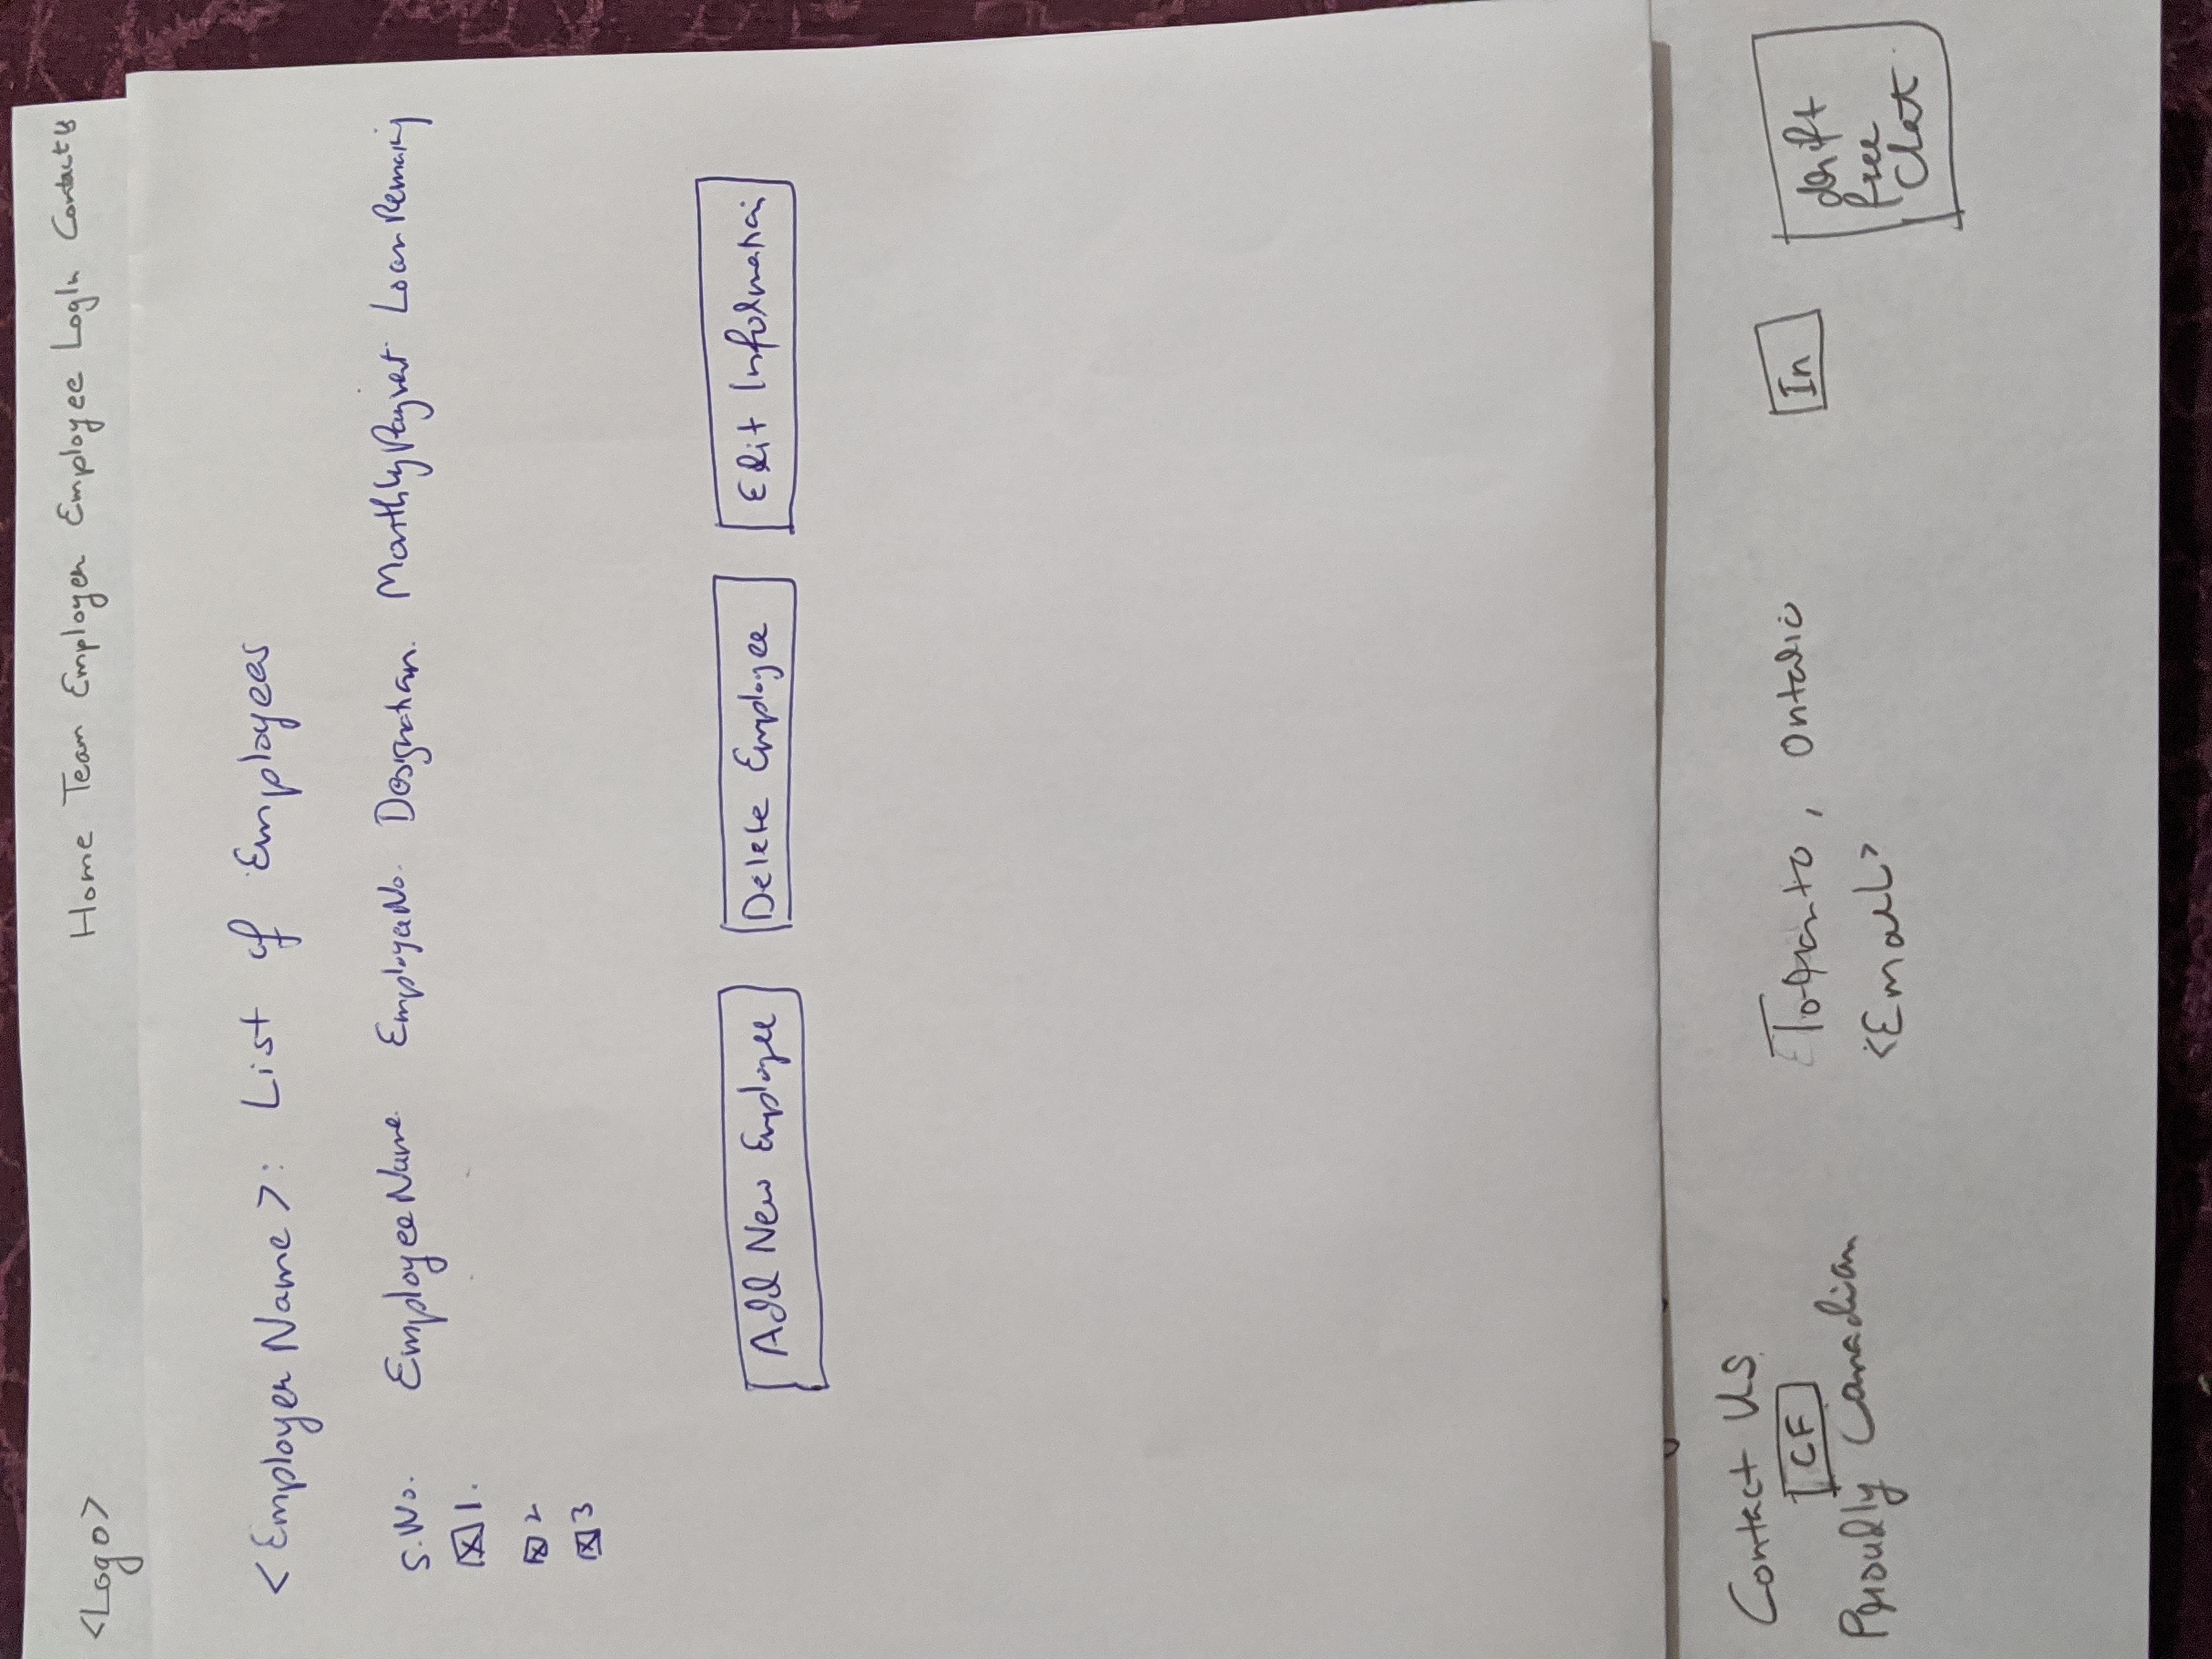 <Logo> Home Team Employer Employee LogIn Contact Us
<Employer Name>: List of Employees
S.No. Employee Name Employee No. Designation. Monthly Payment Loan Remaining
1.
2
3
Add New Employee Delete Employee Edit Information
Contact Us
CF
Proudly Canadian
Toronto, Ontario
<Email>
In
drift
free
Chat